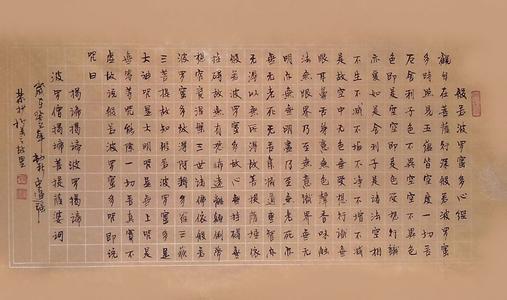 般若波羅蜜多心經
觀自在菩薩行深般若波羅蜜
多時照見五蘊皆空度一切苦
厄舍利子色不異空空不異色
色即是空空即是色受想行識
亦復如是舍利子是諸法空相
不生不滅不垢不淨不增不減
是故空中無色無受想行識無
眼耳鼻舌身意無色聲香味觸
法無眼界乃至無意識界無無
明亦無無明盡乃至無老死亦
無老死盡無苦集滅道無智亦
無得以無所得故菩提薩埵依
般若波羅蜜多故心無罣礙無
罣礙故無有恐怖遠離顛倒夢
想究竟涅槃三世諸佛依般若
波羅蜜多故得阿耨多羅三藐
三菩提故知般若波羅蜜多是
大神咒是大明咒是無上咒是
無等等咒能除一切苦真實不
虛故說般若波羅蜜多咒即說
咒曰
揭諦揭諦波羅揭諦
波羅僧揭諦菩提薩婆訶